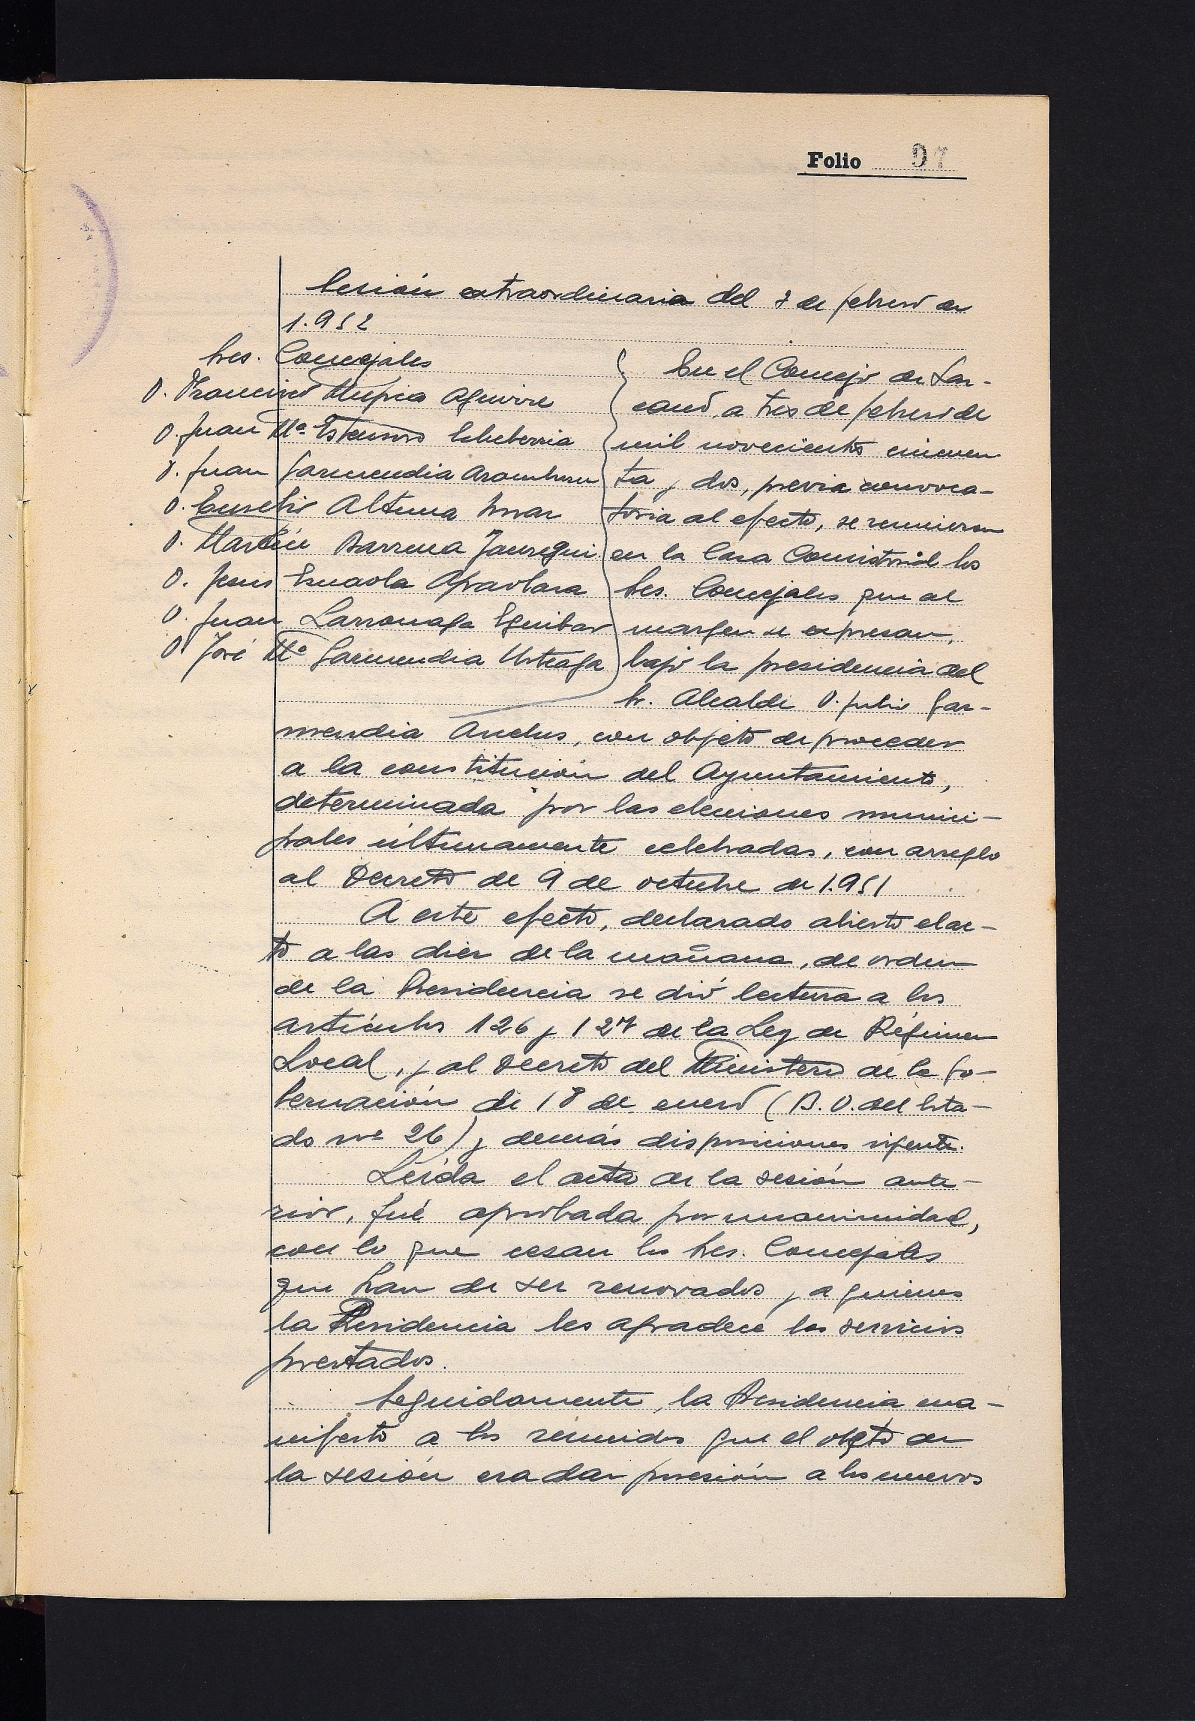 Folio 97
Sesión extraordinaria del 3 de febrero de
1.952
Sres. Concejales
D. Francisco Mugica Aguirre
D. Juan Mª Estensoro Echeberria
D. Juan Garmendia Aramburu
D. Eusebio Altuna
D. Martin Barrena Jauregui
D. Jesus Esnaola Apaolaza
D. Juan Larrañaga Eguibar
D. José Mª Garmendia Urteaga
En el Concejo de Laz-
cano, a tres de febrero de
mil novecientos cincuen
ta y dos, previa convoca-
toria al efecto, se reunieron
en la Casa Consistorial los
Sres. Concejales que al
margen se expresan,
bajo la presidencia del
Sr. Alcalde D. Julio Gar-
mendia, con objeto de proceder
a la constitución del Ayuntamiento,
determinada por las elecciones munici-
pales últimamente celebradas, con arreglo
al Decreto de 9 de octubre de 1.951
A este efecto, declarado abierto el ac-
to a las diez de la mañana, de orden
de la Presidencia se dió lectura a los
artículos 126 y 127 de la Ley de Régimen
Local, y al Decreto del Ministerio de la Go-
bernación de 18 de enero (B.O. del Esta-
do nº 26) y demás disposiciones vigente.
Leída el acta de la sesión ante-
rior, fué aprobada por unanimidad,
con lo que cesan los Sres. Concejales
que han de ser renovados y a quienes
la Presidencia les agradece los servicios
prestados.
Seguidamente, la Presidencia ma-
nifestó a los reunidos que el objeto de
la sesión era dar posesión a los nuevos